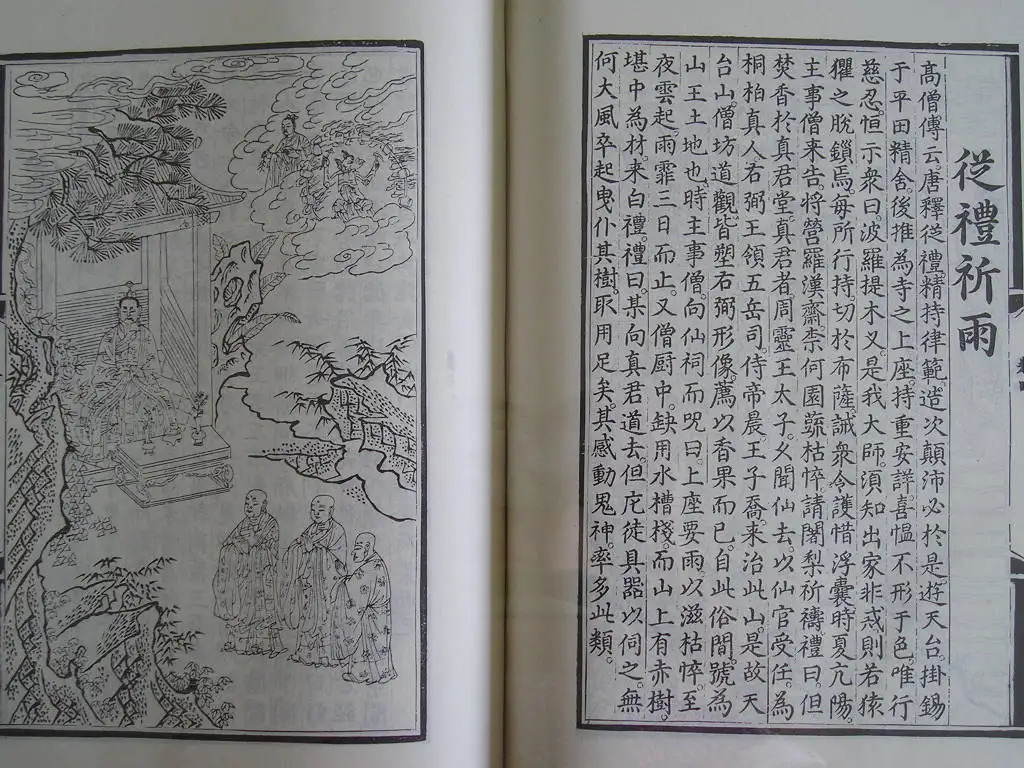 從禮祈雨
高僧傳云唐釋從禮精持律範。造次顛沛必於是遊天台掛錫
于平田精舍後推為寺之上座持重安詳喜慍不形于色。唯行
慈忍恒示衆曰。波羅提木叉。是我大師。須知出家非戒則若猿
玃之脫鎖焉。每所行持。切於布薩誡衆令護惜浮囊時夏亢陽。
主事僧來告。將營羅漢齋柰何園蔬枯悴請闍梨祈禱禮曰但
焚香於真君堂。真君者。周靈王太子。久聞仙去。以仙官受任。為
桐柏真人右弼王領五岳司。侍帝晨。王子喬。來治此山。是故天
台山。僧坊道觀皆塑右弼形像薦以香果而已。自此俗間。號為
山王土地也。時主事僧。向仙祠而咒曰。上座要雨。以滋枯悴。至
夜雲起。雨霏三日而止。又僧厨中。缺用水槽棧而山上有赤樹。
堪中為材。來白禮。禮曰。某向真君道去。但庀徒具器。以伺之。無
何大風卒起曳仆其樹取用足矣。其感動鬼神率多此類。